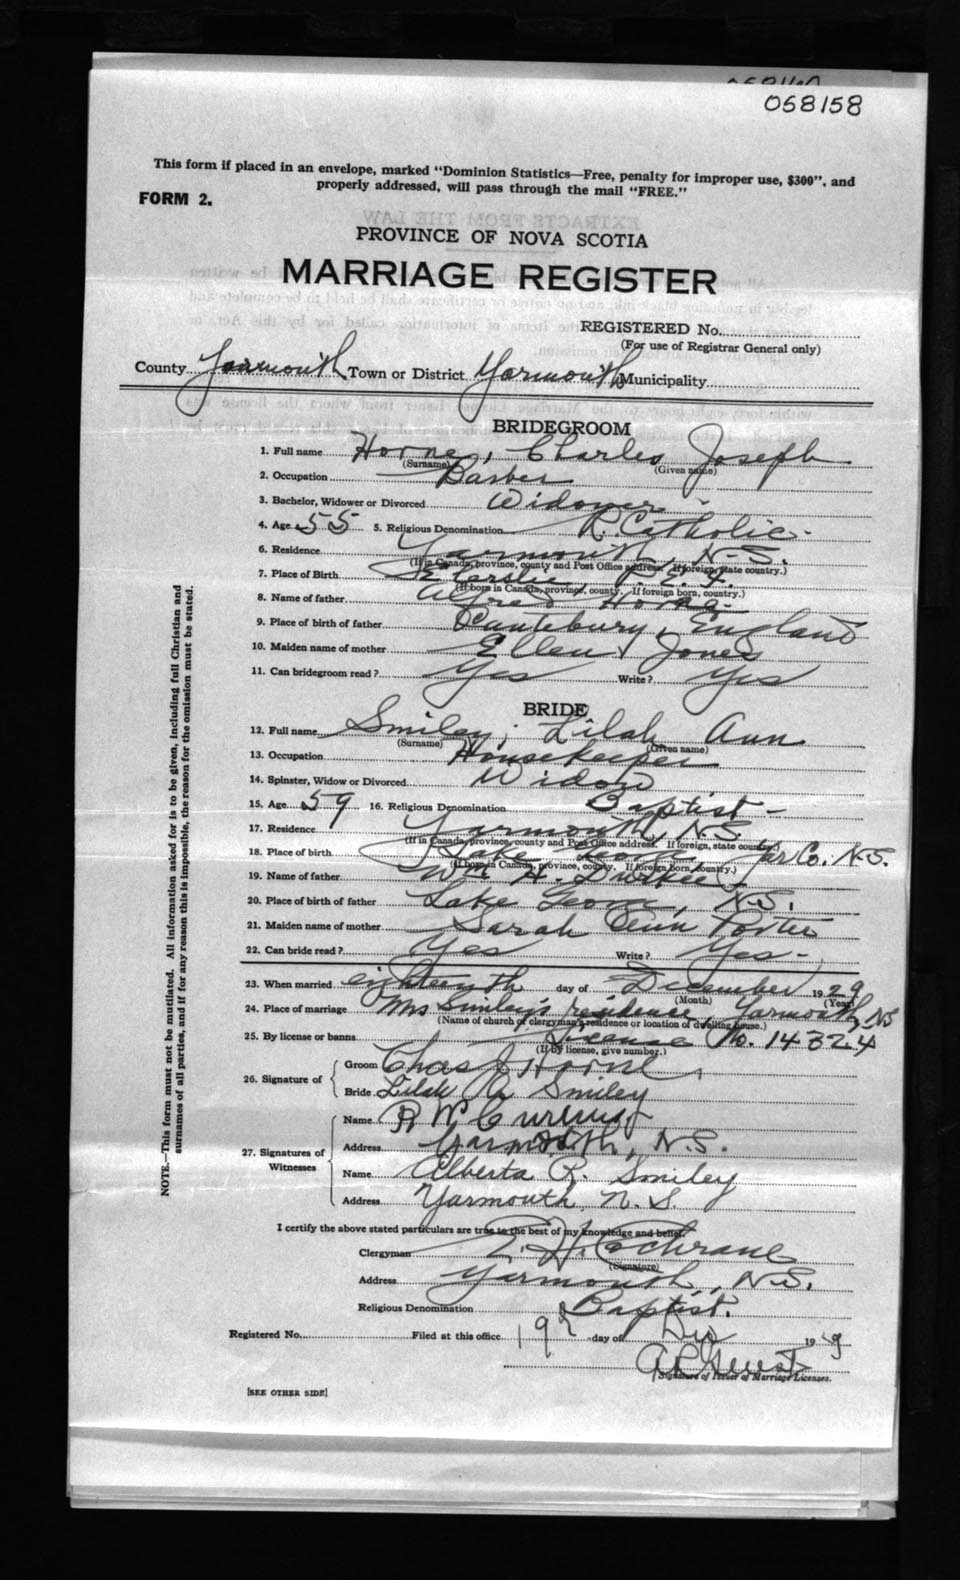 058158
This form if placed in an envelope, marked "Dominion Statistics—Free, penalty for improper use, $300", and
properly addressed, will pass through the mail "FREE."
FORM 2.
PROVINCE OF NOVA SCOTIA
MARRIAGE REGISTER
REGISTERED No.
(For use of Registrar General only)
County Yarmouth Town or District Yarmouth Municipality
BRIDEGROOM
1. Full name Horne, Charles Joseph
(Surname) (Given name)
2. Occupation Barber
3. Bachelor, Widower or Divorced Widower
4. Age 55 5. Religious Denomination R. Catholic
6. Residence Yarmouth, N.S.
(If in Canada, province, county and Post Office address. If foreign, state country.)
7. Place of Birth Ellerslie, P.E.I.
(If born in Canada, province, county. If foreign born, country.)
8. Name of father Alfred Horne
9. Place of birth of father Cantebury, England
10. Maiden name of mother Ellen Jones
11. Can bridegroom read? Yes Write? Yes
BRIDE
12. Full name Smiley, Lilah Ann
(Surname) (Given name)
13. Occupation Housekeeper
14. Spinster, Widow or Divorced Widow
15. Age 59 16. Religious Denomination Baptist
17. Residence Yarmouth, N.S.
(If in Canada, province, county and Post Office address. If foreign, state country.)
18. Place of birth Lake George, Yar Co. N.S.
(If born in Canada, province, county. If foreign born, country.)
19. Name of father Wm H. Durkee
20. Place of birth of father Lake George, N.S.
21. Maiden name of mother Sarah Ann Porter
22. Can bride read? Yes Write? Yes
23. When married eighteenth day of December 1929
(Month) (Year)
24. Place of marriage Mrs Smiley's residence, Yarmouth, NS
(Name of church or clergyman's residence or location of dwelling house.)
25. By license or banns License No. 14324
(If by license, give number.)
26. Signature of Groom Chas J Horne
Bride Lilah A Smiley
27. Signatures of Witnesses
Name R W
Address Yarmouth, N.S.
Name Alberta R. Smiley
Address Yarmouth N.S.
I certify the above stated particulars are true to the best of my knowledge and belief.
Clergyman E. H. Cochrane
(Signature)
Address Yarmouth, N.S.
Religious Denomination Baptist.
Registered No. Filed at this office 19th day of Dec 1929
Signature of Issuer of Marriage Licenses.
[SEE OTHER SIDE]
NOTE.—This form must not be mutilated. All information asked for is to be given, including full Christian and
surnames of all parties, and if for any reason this is impossible, the reason for the omission must be stated.